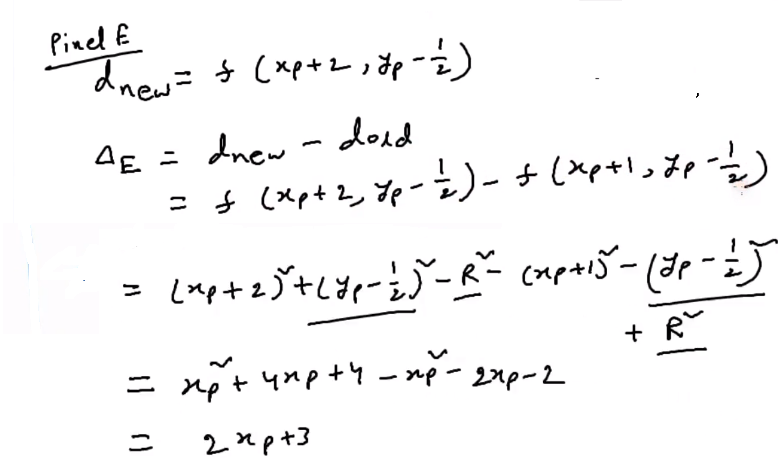 Pixel E
d_new = f (x_p+2, y_p - 1/2)
Δ_E = d_new - d_old
= f (x_p+2, y_p - 1/2) - f (x_p+1, y_p - 1/2)
= (x_p+2)² + (y_p - 1/2)² - R² - (x_p+1)² - (y_p - 1/2)²
+ R²
= x_p² + 4x_p + 4 - x_p² - 2x_p - 2
= 2x_p+3